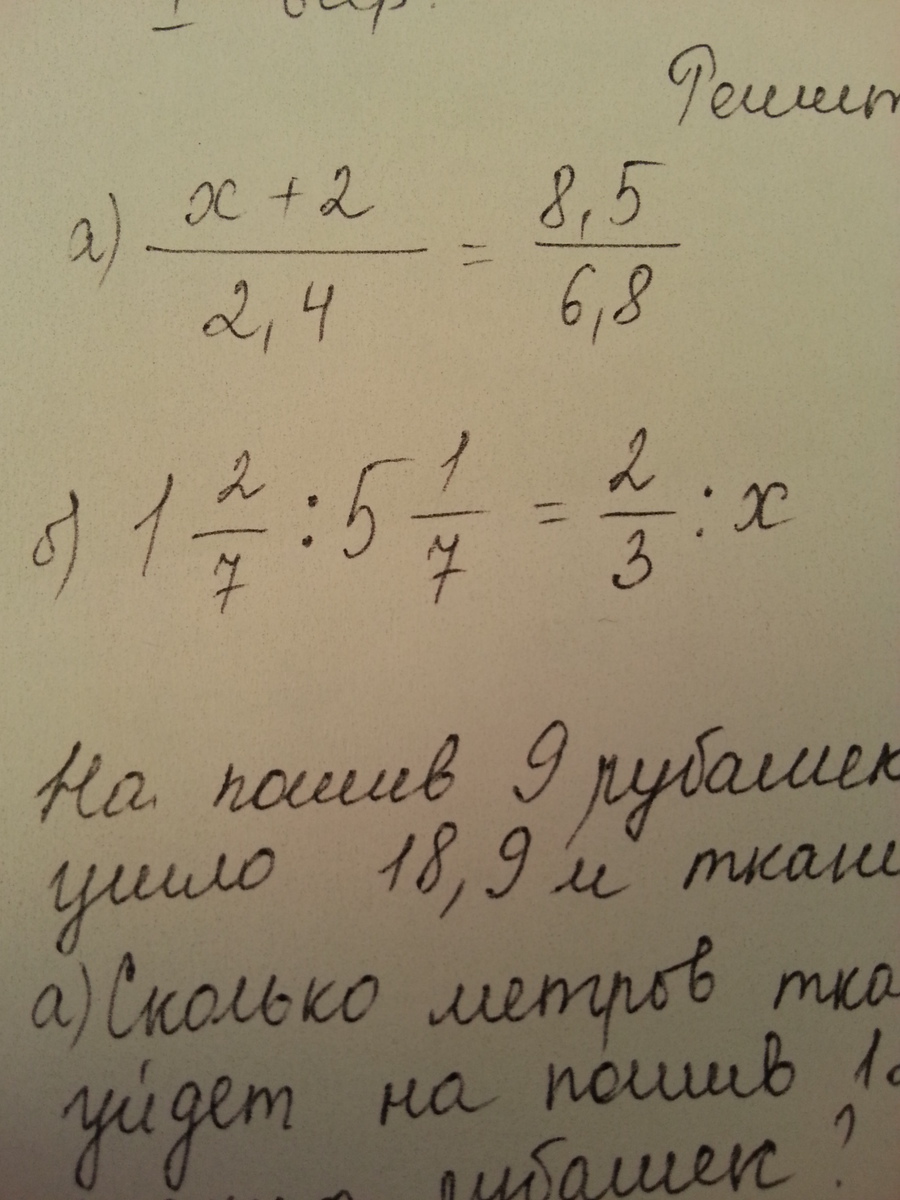 I вар.
Решит
а) x + 2 / 2,4 = 8,5 / 6,8
б) 1 2/7 : 5 1/7 = 2/3 : x
На пошив 9 рубашек
ушло 18,9 м ткани
а) Сколько метров тка
уйдет на пошив 1
рубашек?